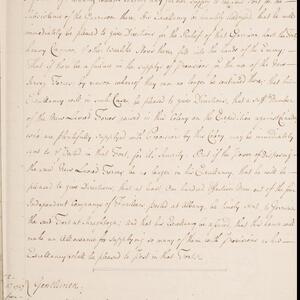 Subsistence of the Garrison there. His Excellency is humbly desired, that he will
immediately be pleased to give Directions for the Relief of that Garrison, lest the
heavy Cannon, & other Warlike Stores there, fall into the Hands of the Enemy;
that if there be a failure in the Supplys of Provisions, for the use of the New
Jersey Forces, by reason whereof they can no longer be continued there, that his
Excellency will in such Case be pleased to give Directions, that a suff Number
of the New Levied Forces raised in this Colony on the Expedition against Canada
who are plentifully supplyed with Provisions by this Colony may be immediately
sent to & Posted in that Fort, for its Security. But if the power of Disposing of
the said New Levied Forces be no longer in his Excellency, that he will be
pleased to give Directions, that at least One hundred Effective Men out of the four
Independent Companys of Fuzileers posted at Albany, be forthwith sent to Garrison
the said Fort at Saraghtoga; and that his Excellency be assured, that this House will
make an allowance for supplying so many of them with provisions as his
Excellency shall be pleased to Post in that Fort.
Gentlemen,